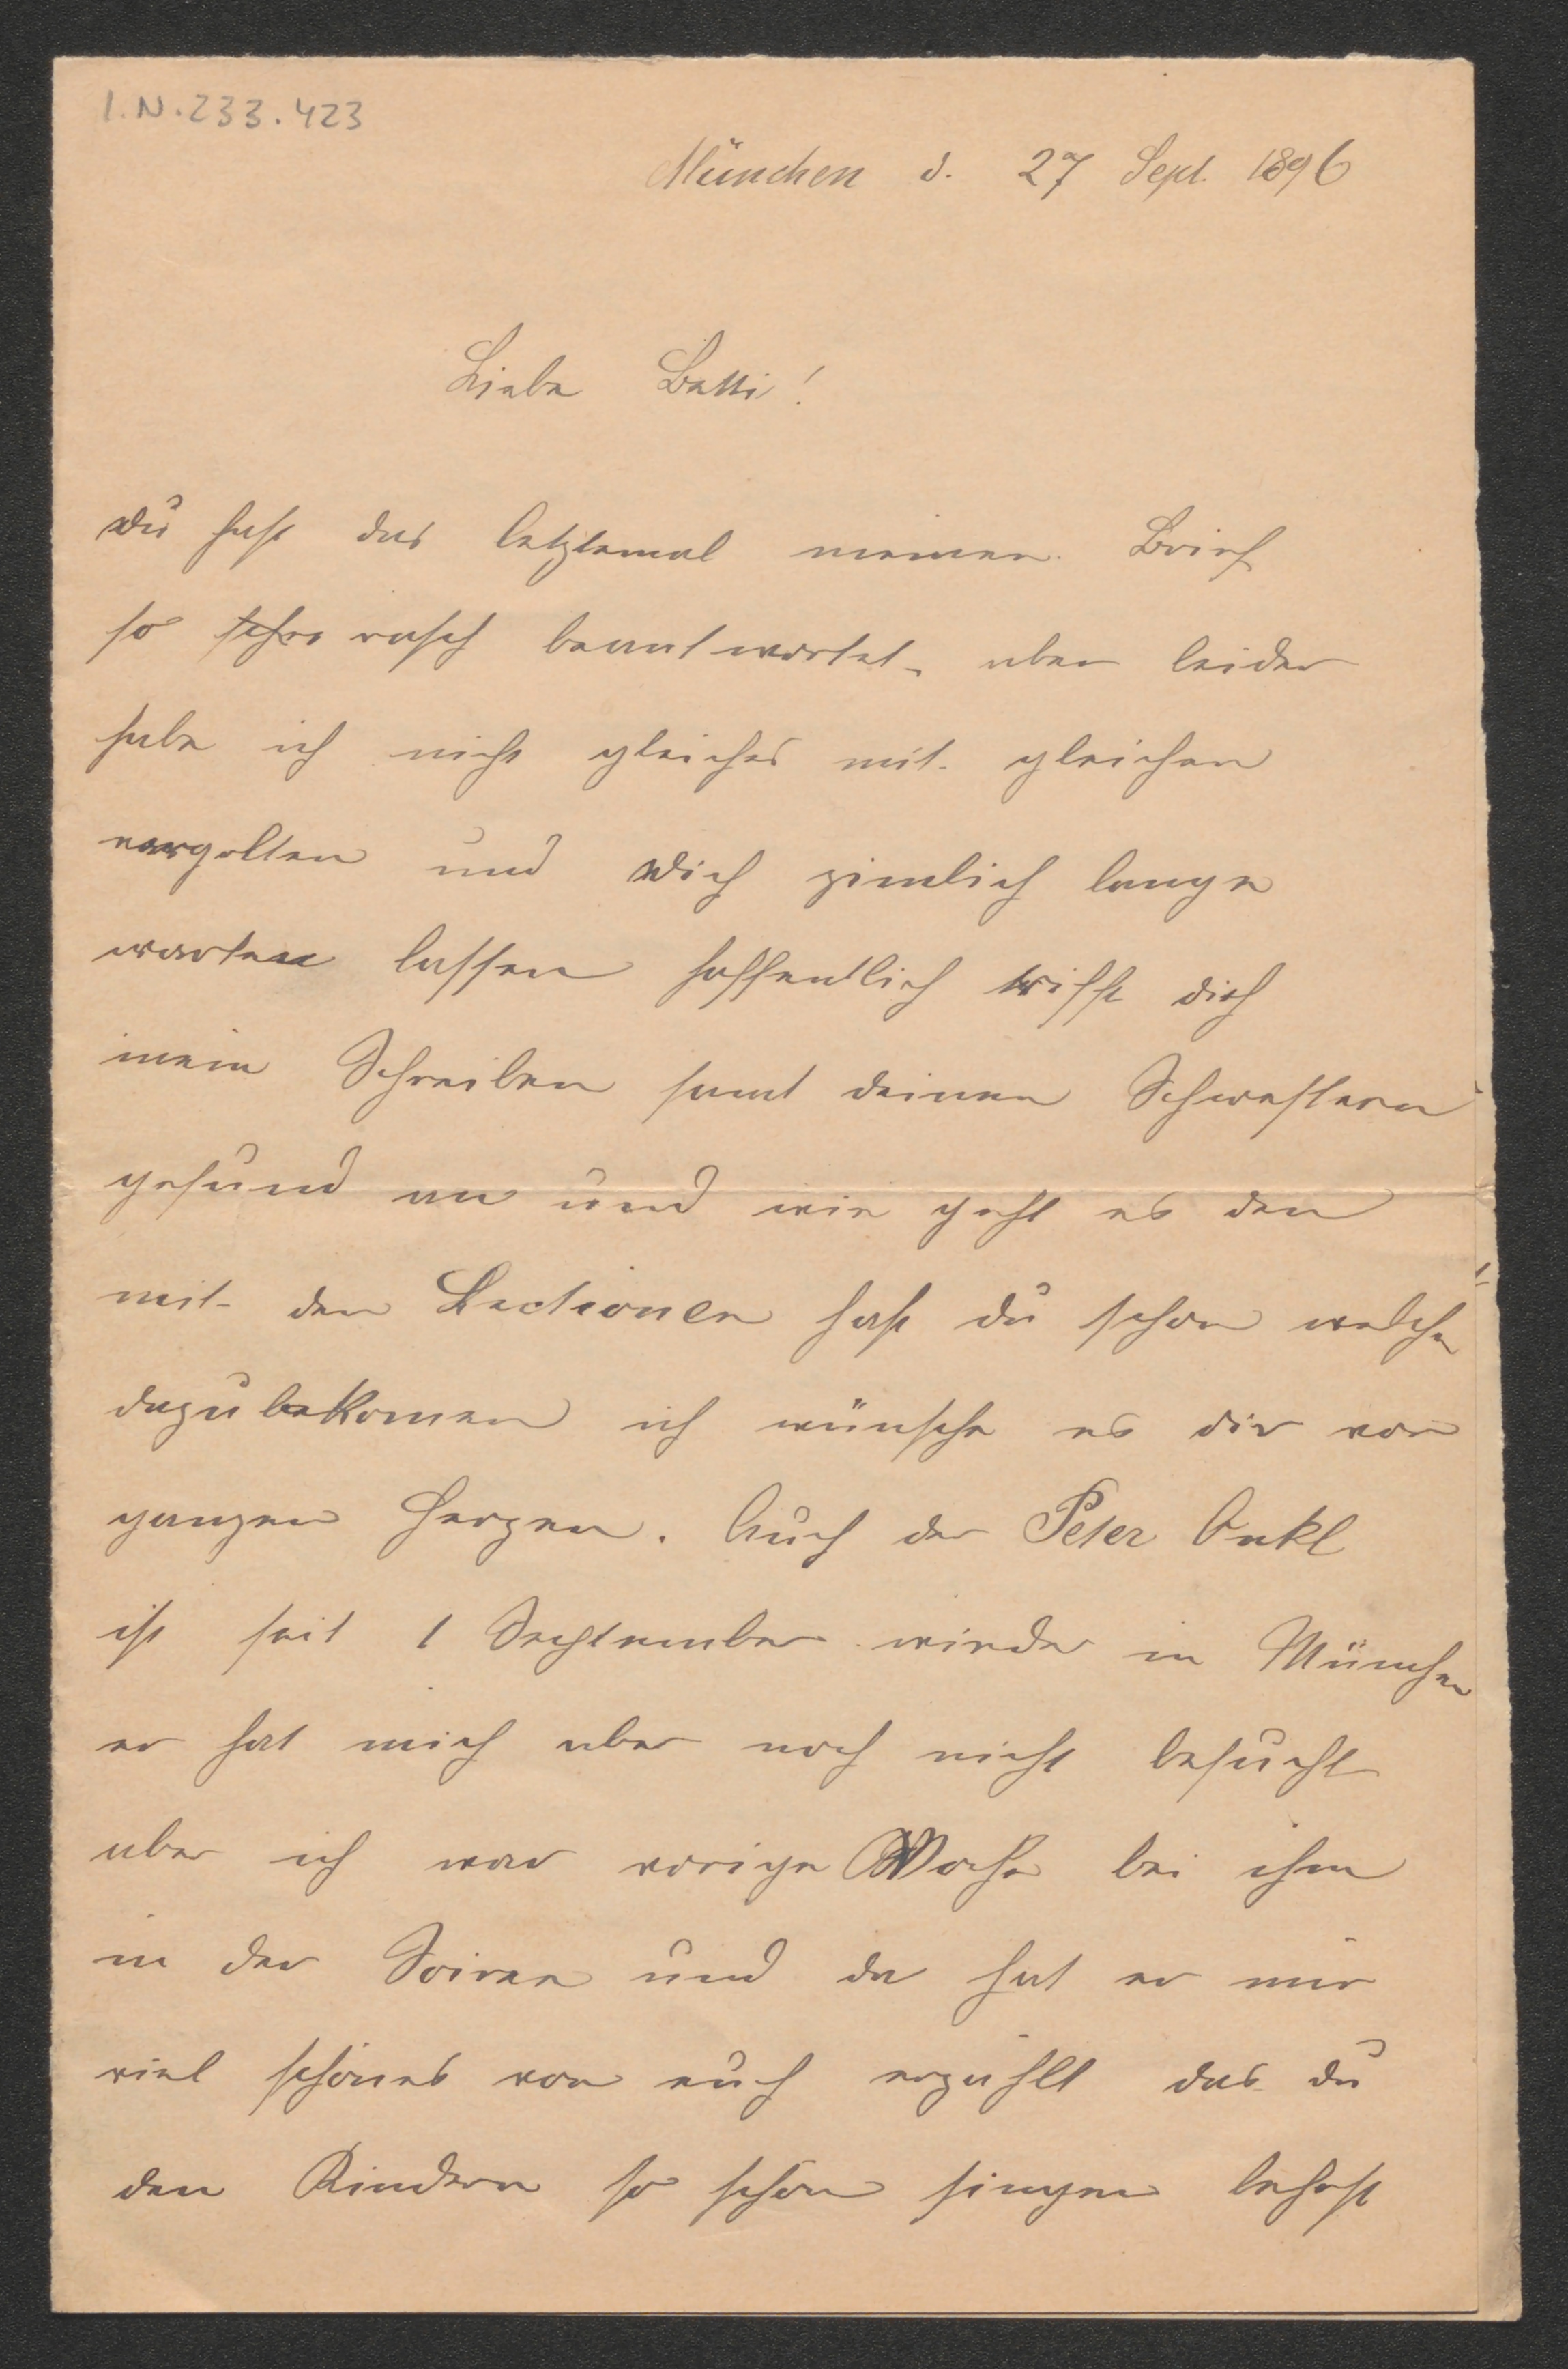 I.N. 233.423
München d. 27 Sept. 1896
Liebe Betti!
Du hast das letztemal meinen Brief
so sehr rasch beantwortet, aber leider
habe ich nicht gleiches mit gleichen
vergolten und Dich zimlich lange
warten lassen hoffentlich trifft dich
mein Schreiben samt deinen Schwestern
gesund an und wie geht es den
mit den Lectionen hast du schon welche
dazubekomen ich wünsche es dir von
ganzen Herzen. Auch der Peter Onkl
ist seit 1 September wieder in München
er hat mich aber noch nicht besucht
aber ich war vorige Woche bei ihm
in der Soiree und da hat er mir
viel schönes von euch erzählt das du
den Kindern so schön singen lehrst